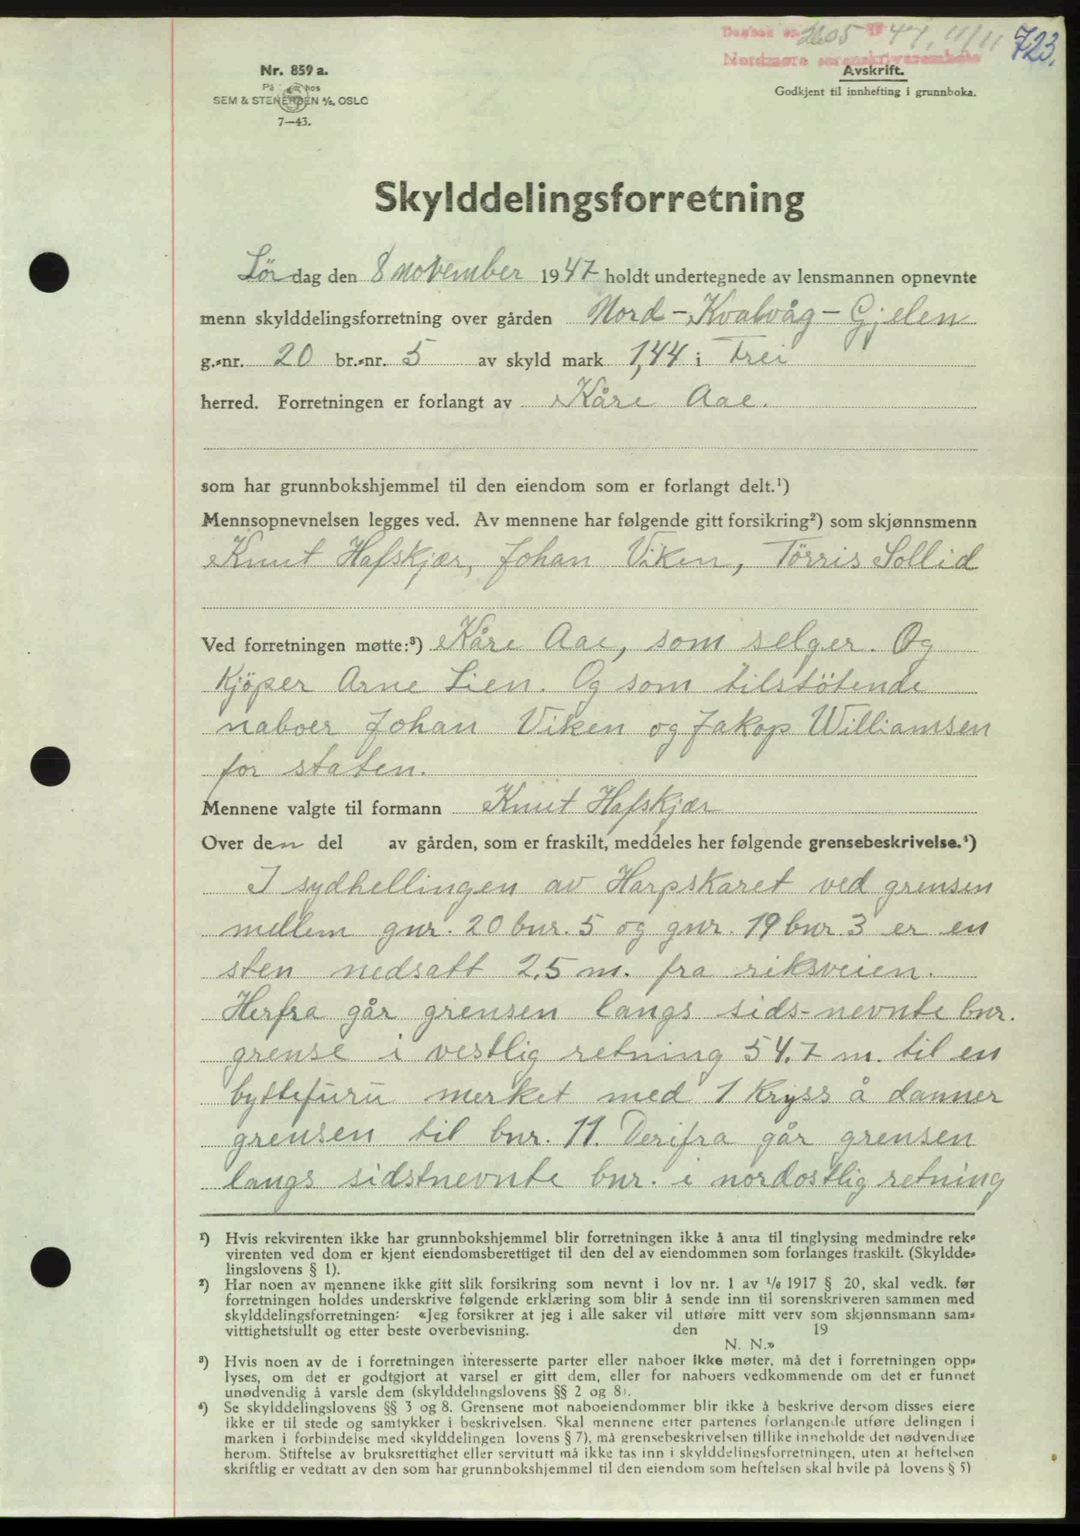 Dagbok nr. 2605 19 47, 11/11 723.
Nordmøre sorenskriverembete
Nr. 859 a.
På hos
SEM & STENERSEN A/S, OSLO
7—43.
Avskrift.
Godkjent til innhefting i grunnboka.
Skylddelingsforretning
Lørdag den 8 november 1947 holdt undertegnede av lensmannen opnevnte
menn skylddelingsforretning over gården Nord-Kvalvåg-Gjelen
g.-nr. 20 br.-nr. 5 av skyld mark 1,44 i Frei
herred. Forretningen er forlangt av Kåre Aae.
som har grunnbokshjemmel til den eiendom som er forlangt delt.¹)
Mennsopnevnelsen legges ved. Av mennene har følgende gitt forsikring²) som skjønnsmenn
Knut Hafskjær, Johan Viken, Tørris Sollid
Ved forretningen møtte:³) Kåre Aae, som selger. Og
Kjöper Arne Lien. Og som tilstötende
naboer Johan Viken og Jakop Williamsen
for staten.
Mennene valgte til formann Knut Hafskjær
Over den del av gården, som er fraskilt, meddeles her følgende grensebeskrivelse.⁴)
I sydhellingen av Harpskaret ved grensen
mellem gnr. 20 bnr. 5 og gnr. 19 bnr. 3 er en
sten nedsatt 2,5 m. fra riksveien.
Herfra går grensen langs sids-nevnte bnr.
grense i vestlig retning 54,7 m. til en
byttefuru merket med 1 kryss å danner
grensen til bnr. 11. Derifra går grensen
langs sidstnevnte bnr. i nordostlig retning
¹) Hvis rekvirenten ikke har grunnbokshjemmel blir forretningen ikke å anta til tinglysing medmindre rek-
virenten ved dom er kjent eiendomsberettiget til den del av eiendommen som forlanges fraskilt. (Skyldde-
lingslovens § 1).
²) Har noen av mennene ikke gitt slik forsikring som nevnt i lov nr. 1 av 1/6 1917 § 20, skal vedk. før
forretningen holdes underskrive følgende erklæring som blir å sende inn til sorenskriveren sammen med
skylddelingsforretningen: «Jeg forsikrer at jeg i alle saker vil utføre mitt verv som skjønnsmann sam-
vittighetsfullt og etter beste overbevisning. den 19
N. N.»
³) Hvis noen av de i forretningen interesserte parter eller naboer ikke møter, må det i forretningen opp-
lyses, om det er godtgjort at varsel er gitt dem, eller for naboers vedkommende om det er funnet
unødvendig å varsle dem (skylddelingslovens §§ 2 og 8).
⁴) Se skylddelingslovens §§ 3 og 8. Grensene mot naboeiendommer blir ikke å beskrive dersom disses eiere
ikke er til stede og samtykker i beskrivelsen. Skal mennene etter partenes forlangende utføre delingen i
marken i forbindelse med skylddelingen lovens § 7), må grensebeskrivelsen tillike inneholde det nødvendige
herom. Stiftelse av bruksrettighet eller servitutt må ikke tas inn i skylddelingsforretningen, uten at heftelsen
skriftlig er vedtatt av den som har grunnbokshjemmel til den eiendom som heftelsen skal hvile på lovens § 5)